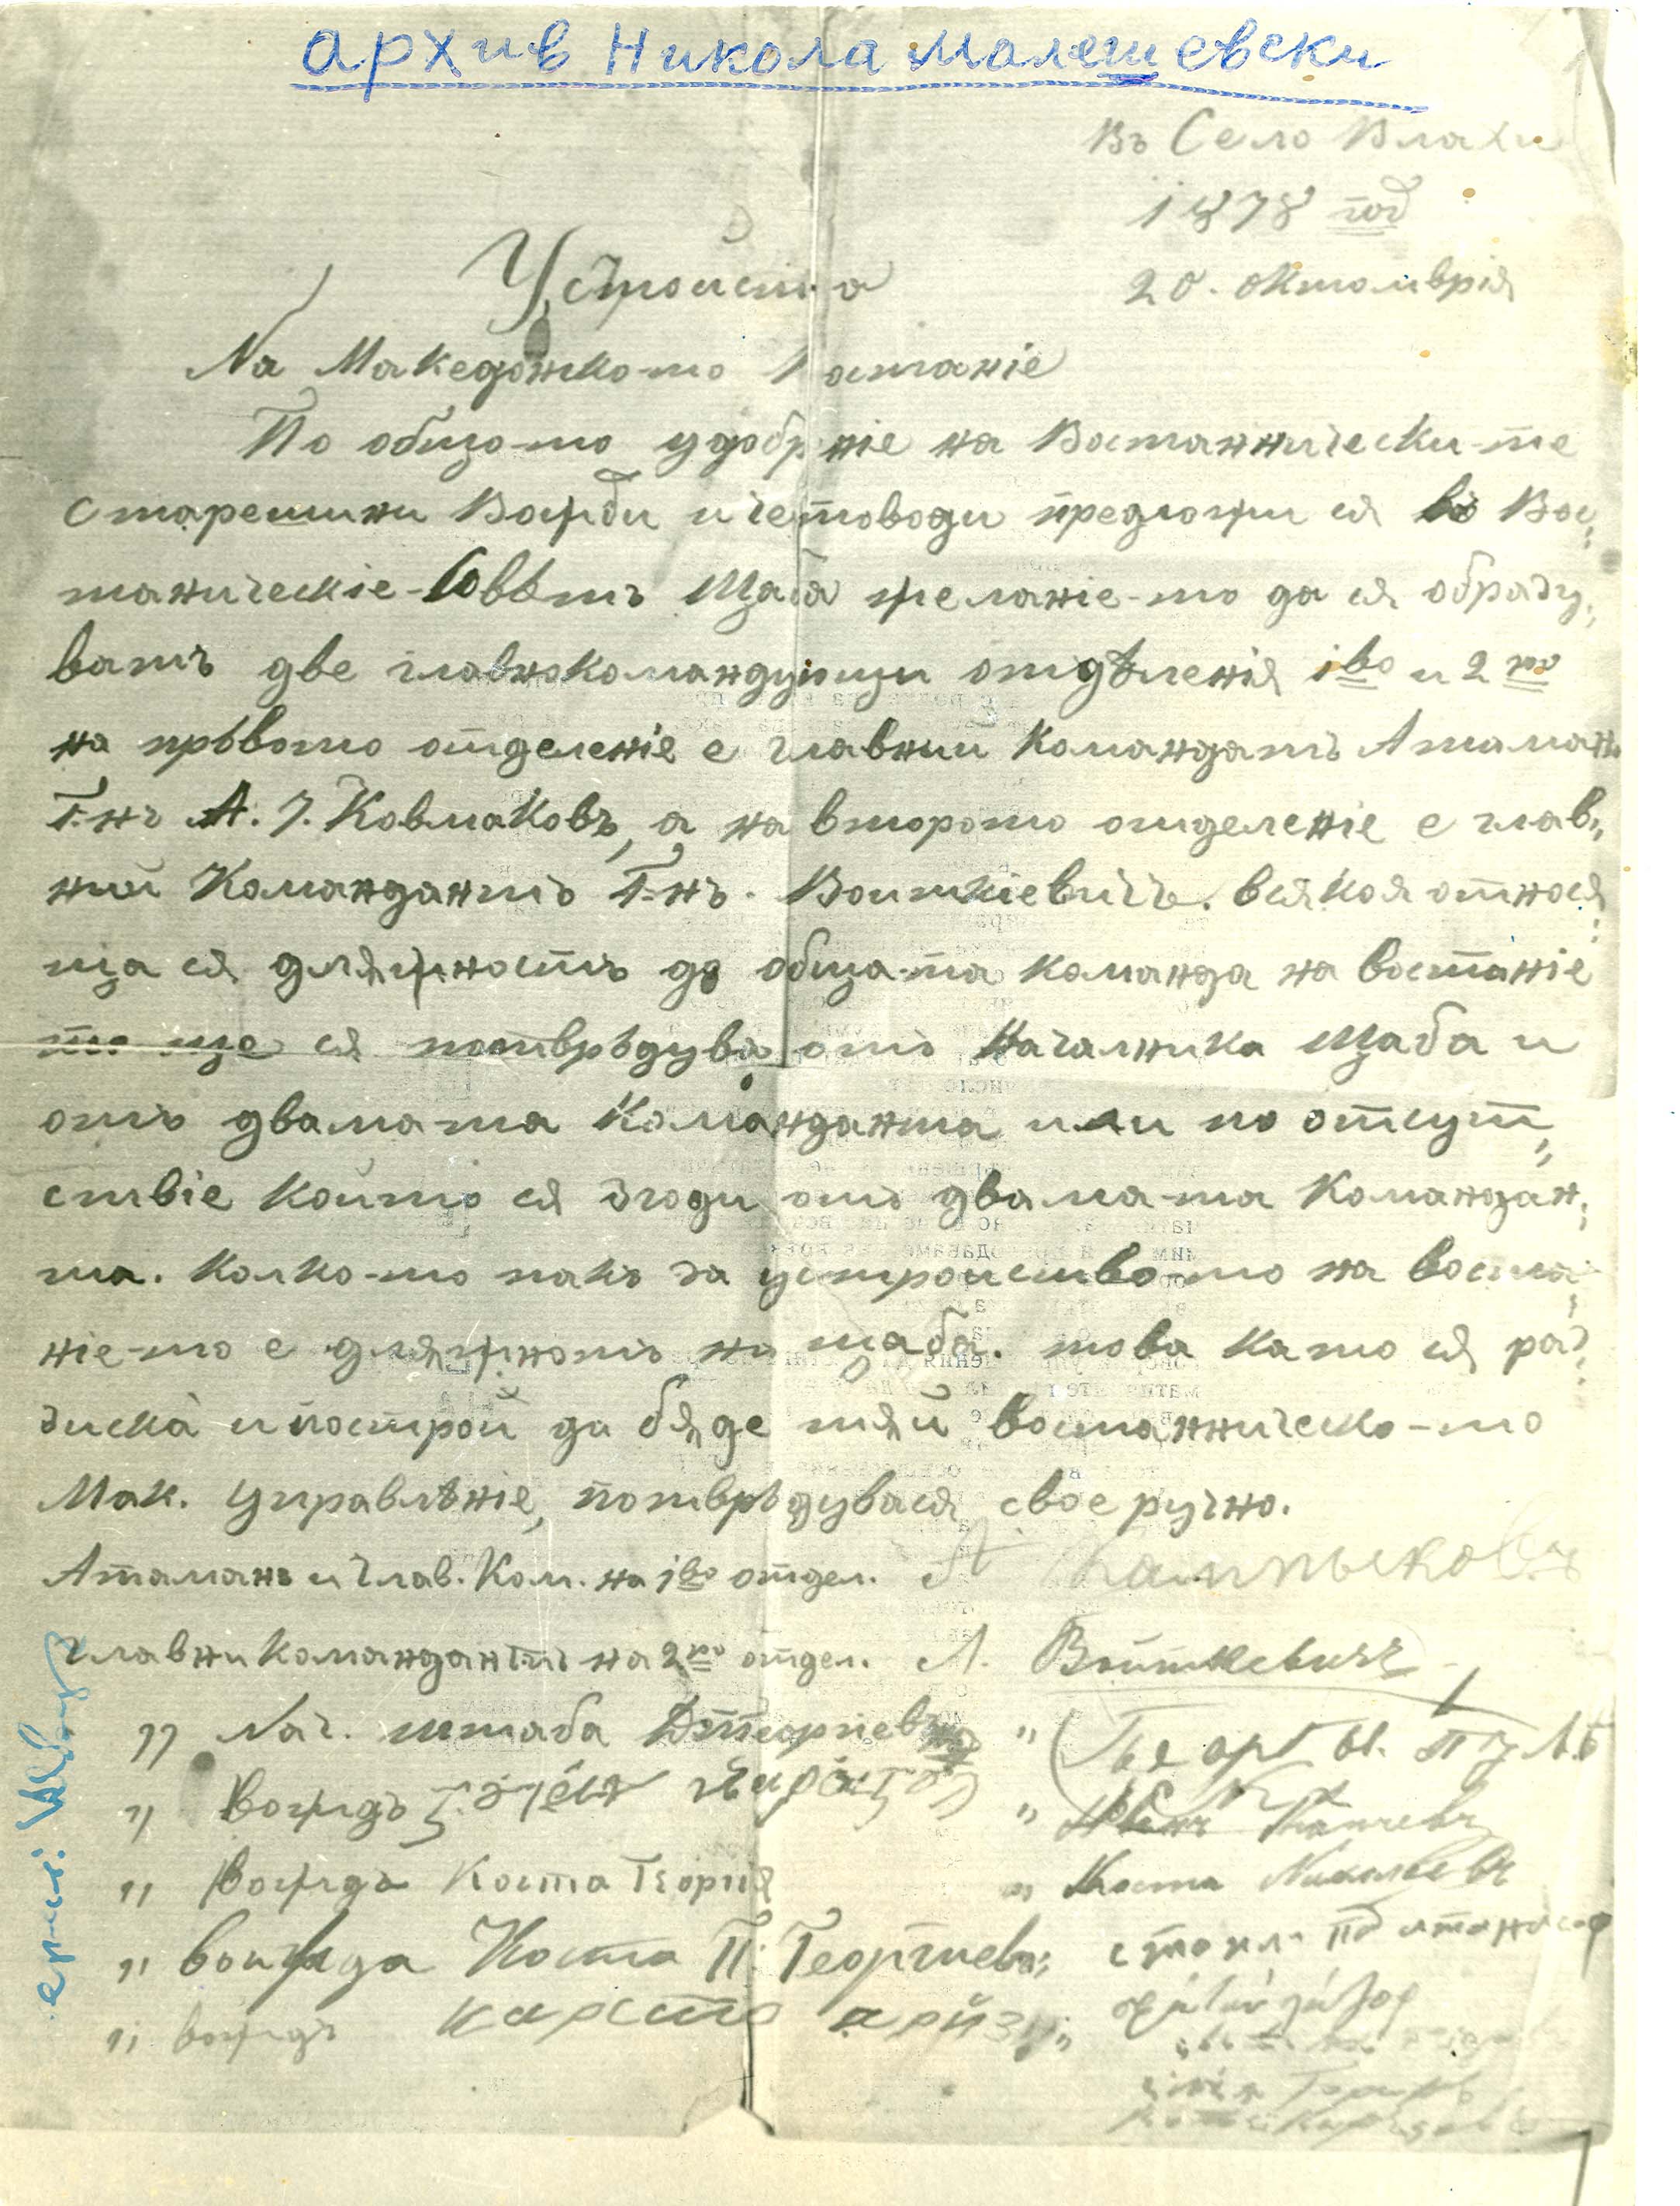 архив Никола Малешевски
Въ Село Влахи
1878 год
20. октомврія
Устойства
На Македонско-то Востаніе
По общо-то удобреніе на Востаннически-те
старешини Вожди и четоводи предложи ся въ Вос„
таническіе-Совѣтъ Щаба желаніе-то да ся образу„
ватъ две главнокомандующи отдѣленія 1во и 2ро
на прьвото отделеніе е главнии командатъ Атаманъ
Г-нъ А. І. Ковмаковъ, а на второто отделеніе е глав„
ний Командантъ Г-нъ. Воиткіевичъ. всякоя относя„
ща ся дляжность до обща-та команда на востаніе
то ще ся потврьдува отъ Началника Щаба и
отъ двама-та Команданта или по отсут„
ствіе който ся згоди отъ двама-та Командан„
та. колко-то пакъ за устроиство-то на воста„
ніе-то е дляжность на щаба. това като ся раз„
зиска и построй да бяде тяй востанническо-то
Мак. Управлѣніе, потврьдувася своеручно.
Атаманъ и Глав. Ком. на 1во отдел. А Калмыковъ
Главни Командантъ на 2ро отдел. Л. Войткевичъ
„ Нач. штаба Д
„ Вождъ „
„ Вождъ Коста Георгія „ Коста Николовъ
„ вожда Коста П. Георгиевъ „ стоил
„ вождъ карсто